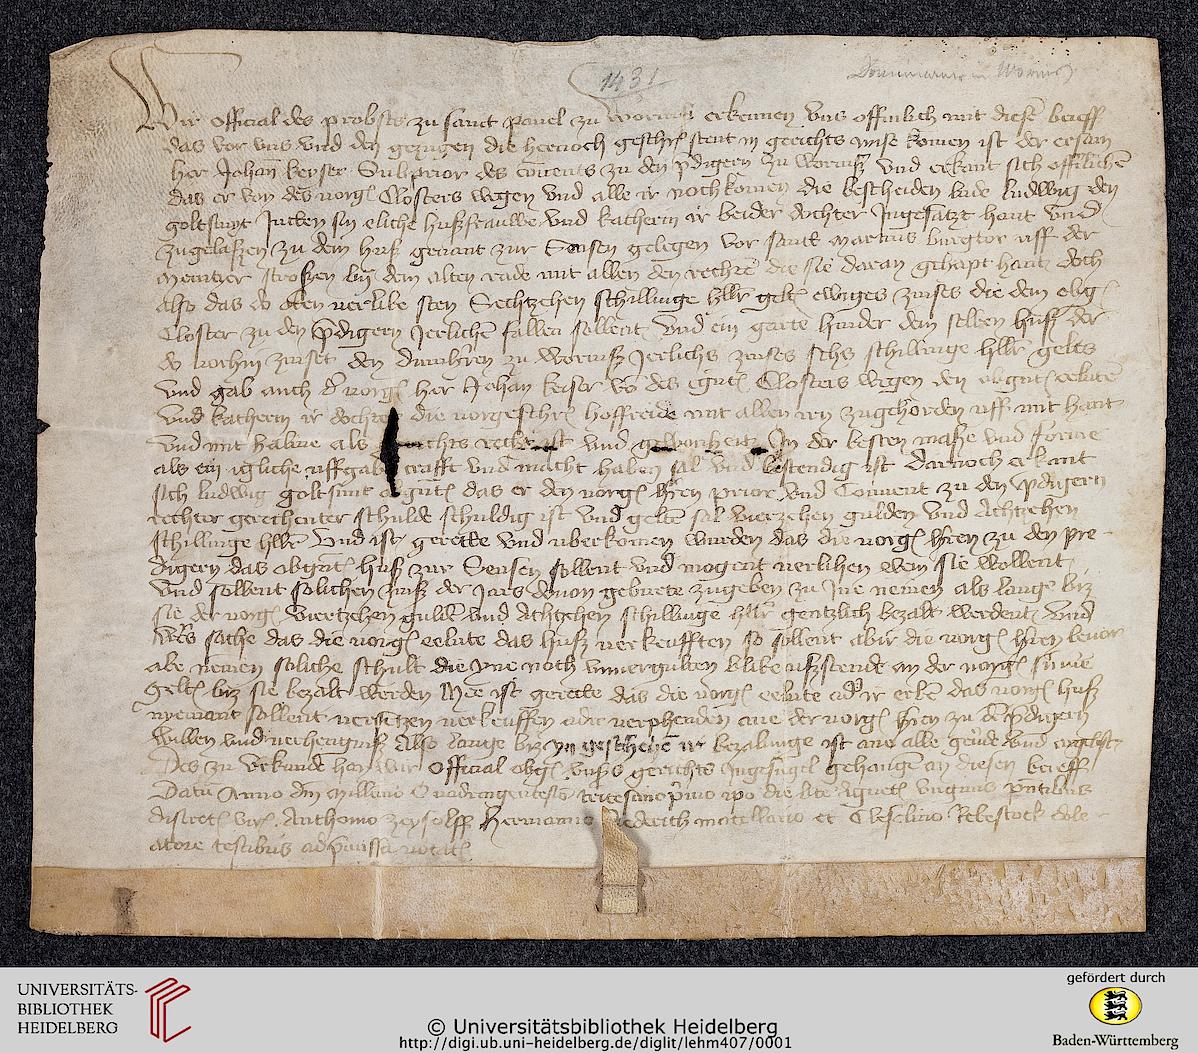 1431
Dominicaner in Worms
Wir Official des probsts zu sanct pauel zu Wormß erkennen vns offinlich mit diesē brieff
das vor vns vnd den gezugen die hernoch geschrī stent in gerichts wise komen ist der ersam
her Johan keyser Subprior des conuents zu den p̄digern zu Wormß vnd erkant sich offēlichē
das er von des vorgī Closters wegen vnd alle ir nochkomen die bescheiden lude Ludwig den
goltsmyt Jucken sin eliche hußfrauwe vnd katherin ir beider dochter Ingesatzt hant vnd
zugelaßen zu dem huß genant zur Sensen gelegen vor sant martins burgtor vff der
mentzer stroßen by dem alten rade mit allen den rechtē die sie daran gehapt hant doch
also das do oben verlibe sten Sechtzehen schillinge hllr geltī ewiges zinses die dem obgī
Closter zu den p̄digern Jerlichē fallen sollent vnd ein garte hinder dem selben huß der
do vorhin zinset den dumhr̄en zu Wormß Jerlichs zinses sehs schillinge hllr gelts
vnd gab auch d' vorgī her Johan keiser vō des egn̄tī Closters wegen den obgn̄tī eelutē
vnd katherin ir dochter die vorgeschrī hoffreide mit allen irn zugehorden vff mit hant
vnd mit halme als rechts recht ist vnd gewonheit In der besten maße vnd forme
als ein igliche vffgab crafft vnd macht haben sal vnd bestendig ist Darnoch erkant
sich ludwig goltsmit obgn̄tī das er den vorgī hr̄en prior vnd Conuent zu den p̄digern
rechter gerechenter schulde schuldig ist vnd geltē sal vierzehen gulden vnd Achtzehen
schillinge hllr vnd ist geredte vnd vberkomen wurden das die vorgī hr̄en zu den pre-
digern das obgn̄tī huß zur Sensen sollent vnd mogent verlihen wem sie wollent
vnd sollent solichen zinß der Jars dauon geburte zugeben zu Jne nemen als lange biz
sie der vorgī vierzehen guldē vnd Achtzehen schillinge hllr gentzlich bezalt werdent vnd
wers sache das die vorgī eelute das huß verkeufften so sollent abir die vorgī hr̄en beuor
abe nemen soliche schult die yne noch vnuergulten blibe vßstende an der vorgī sum̄e
geltī biz sie bezalt werden Mee ist geredte das die vorgī eelute ad' ir erbē das vorgī huß
nyemant sollent versetzen verkeuffen oder verphenden ane der vorgī hr̄en zu dē p̄digern
willen vnd verhengniß Also lange biz yn geschehē ir bezalunge ist ane alle geu'de vnd argelist
Des zu vrkunde han wir Official obgī vnßs gerichts Ingesigel gehangē an diesen brieff
Datū Anno dn̄i millesio Quadringentesiō tricesimo p̄mo ip̄o die bt̄e Agnetī virginis p̄ntibus
discretī virī Anthonio zeysolff Hermanno diederich et Cleselino Rebestock dole-
atore testibus ad p̄missa vocatī
UNIVERSITÄTS-
BIBLIOTHEK
HEIDELBERG
© Universitätsbibliothek Heidelberg
http://digi.ub.uni-heidelberg.de/diglit/lehm407/0001
gefördert durch
Baden-Württemberg